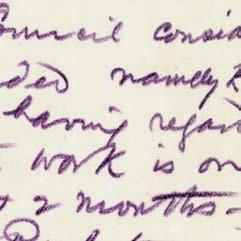 Council consid
ded namely
having regard
work is on
2 months -